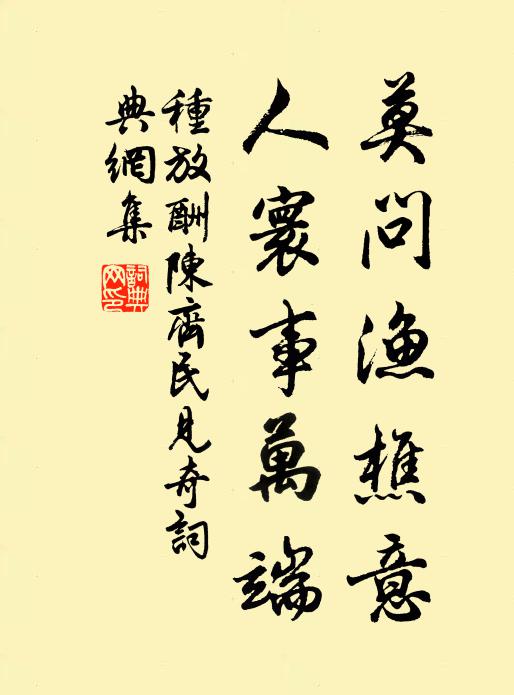 莫問漁樵意
人寰事萬端
種放酬陳齊民見奇詞
典網集
詞典
网印